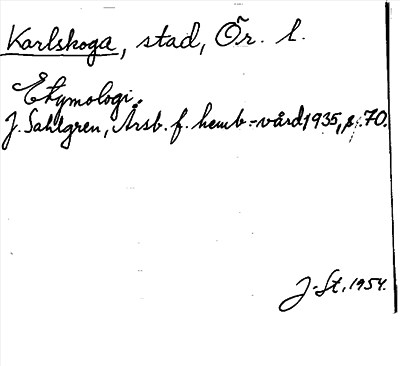 Karlskoga, stad, Ör. l.
Etymologi.
J. Sahlgren, Årsb. f. hemb.-vård 1935, s. 70.
J-St. 1954.